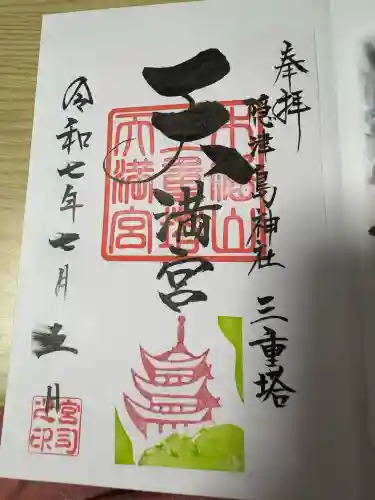 奉拝
隠津島神社 三重塔
天満宮
木幡山
天満宮
令和七年七月五日
宮司之印